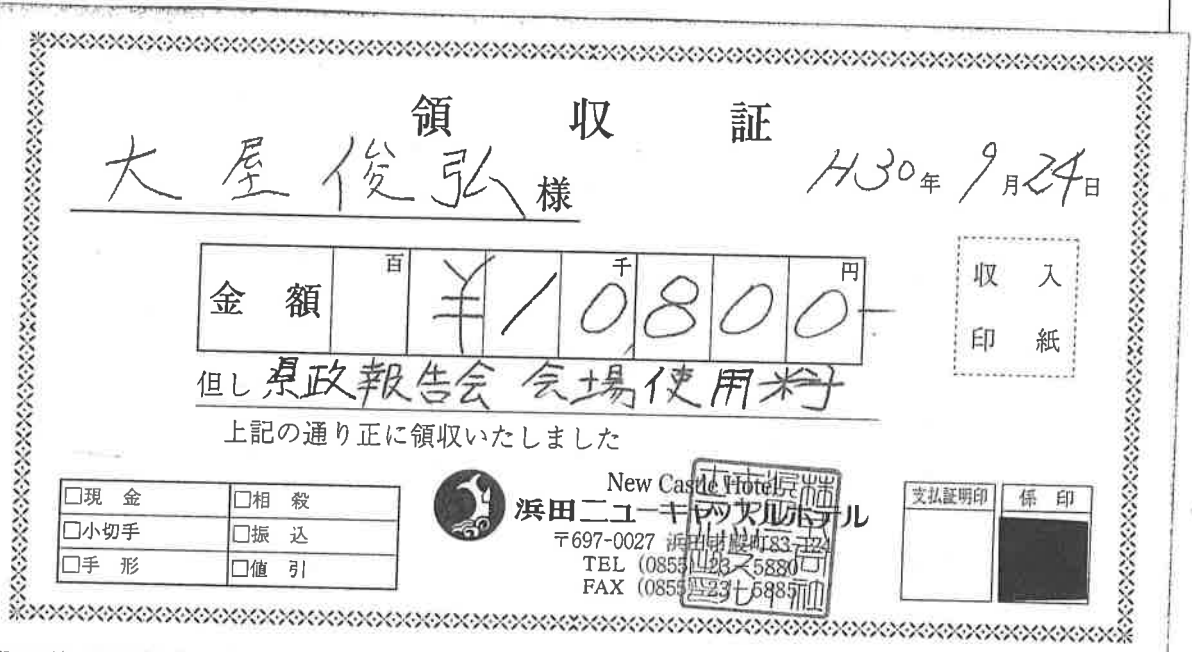 領収証
大屋俊弘様
H30年9月24日
金額 百 千 円
¥10,800-
収入
印紙
但し 県政報告会 会場使用料
上記の通り正に領収いたしました
□現金 □相殺
□小切手 □振込
□手形 □値引
New Castle Hotel
浜田ニューキャッスルホテル
〒697-0027 浜田市殿町83-124
TEL (0855) 23-5880
FAX (0855) 23-5885
支払証明印 係印